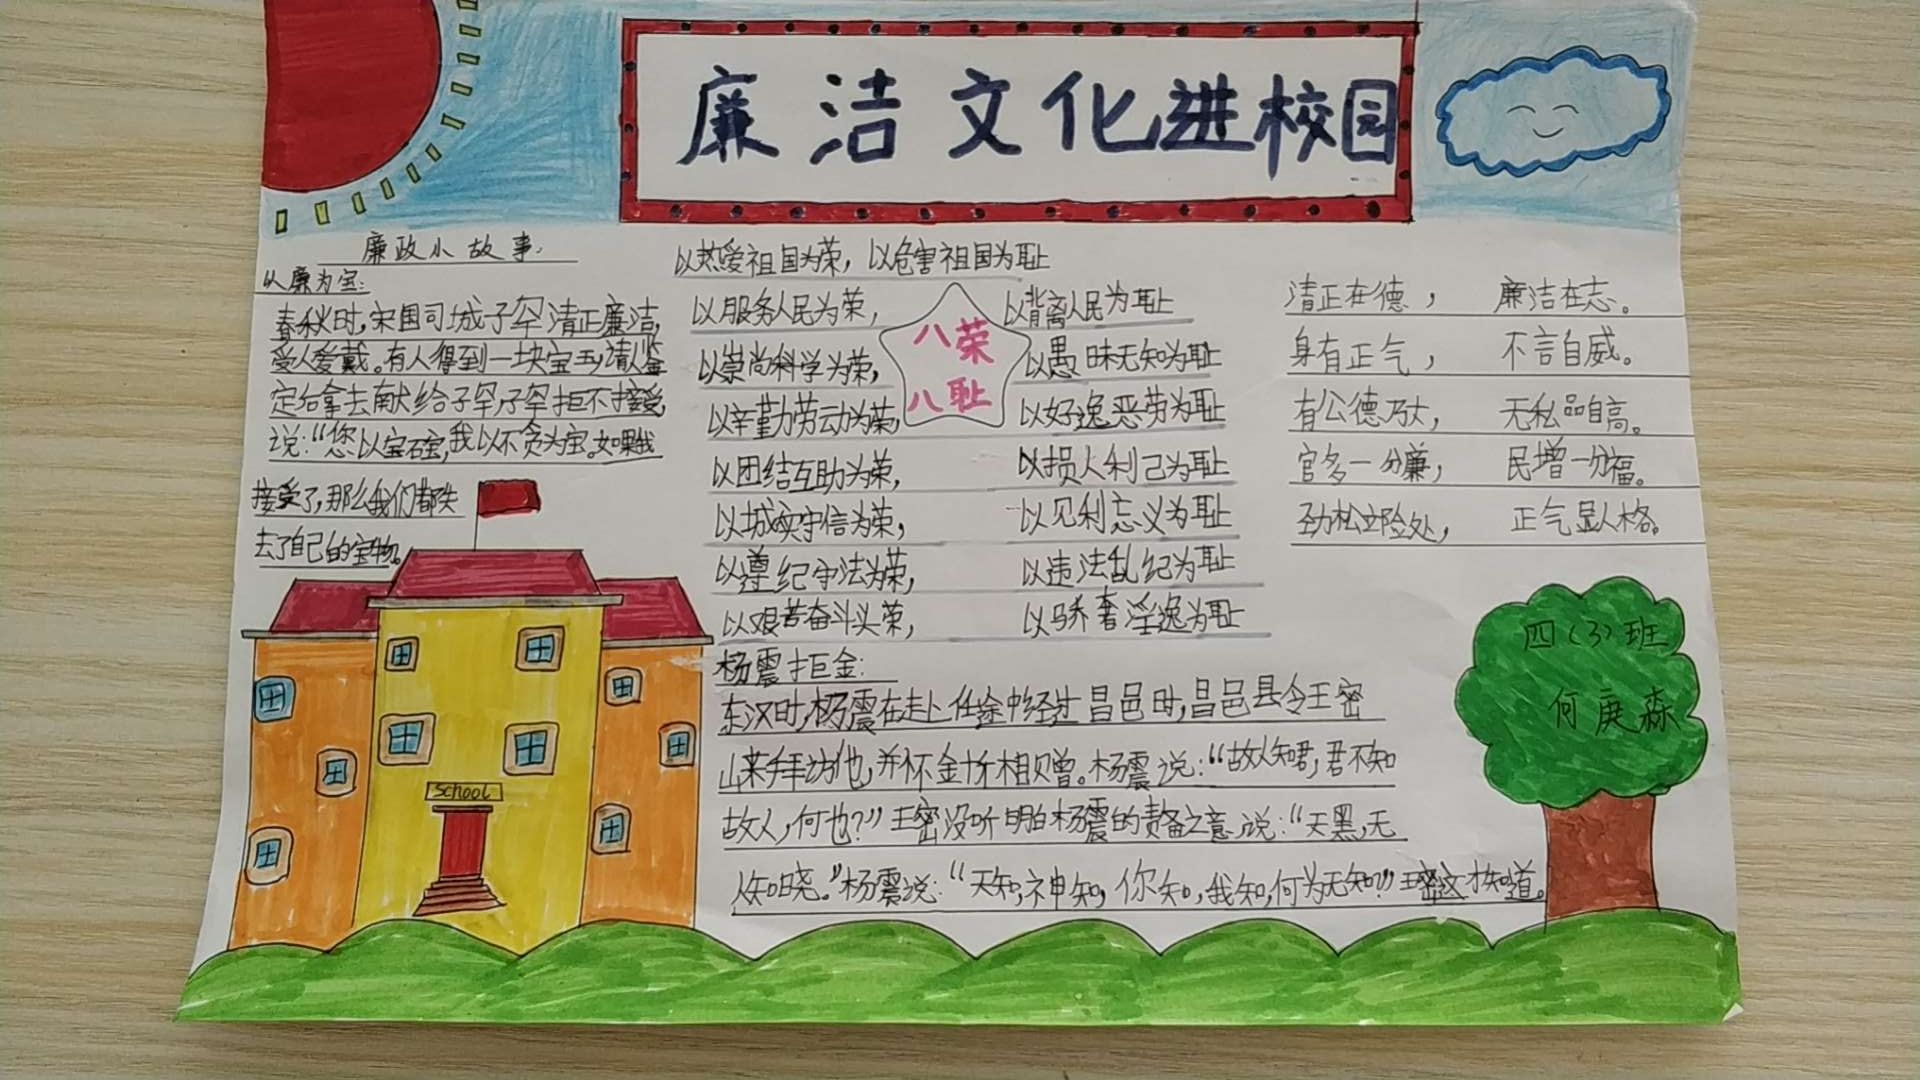 廉洁文化进校园
廉政小故事:
以廉为宝:
春秋时,宋国司城子罕清正廉洁,
受人爱戴。有人得到一块宝玉,请人鉴
定后拿去献给子罕,子罕拒不接受,
说:“您以宝石宝,我以不贪为宝。如果我
接受了,那么我们都失
去了自己的宝物。
School
以热爱祖国为荣,以危害祖国为耻
以服务人民为荣, 以背离人民为耻
八荣
八耻
以崇尚科学为荣, 以愚昧无知为耻
以辛勤劳动为荣, 以好逸恶劳为耻
以团结互助为荣, 以损人利己为耻
以城实守信为荣, 以见利忘义为耻
以遵纪守法为荣, 以违法乱纪为耻
以艰苦奋斗为荣, 以骄奢淫逸为耻
杨震拒金:
东汉时,杨震在赴任途中经过昌邑时,昌邑县令王密
来拜访他,并怀金十斤相赠。杨震说:“故人知君,君不知
故人,何也?”王密没听明白杨震的责备之意,说:“天黑,无
人知晓。”杨震说:“天知,神知,你知,我知,何为无知?”王密这才知道。
清正在德, 廉洁在志。
身有正气, 不言自威。
有公德乃大, 无私品自高。
官多一分廉, 民增一分福。
劲松立险处, 正气显人格。
四(3)班
何庚森